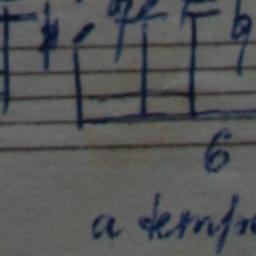 6
a tempo